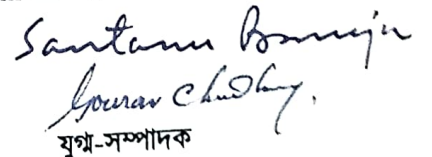 Santanu Banerjee
Gourav Chowdhury.
যুগ্ম-সম্পাদক